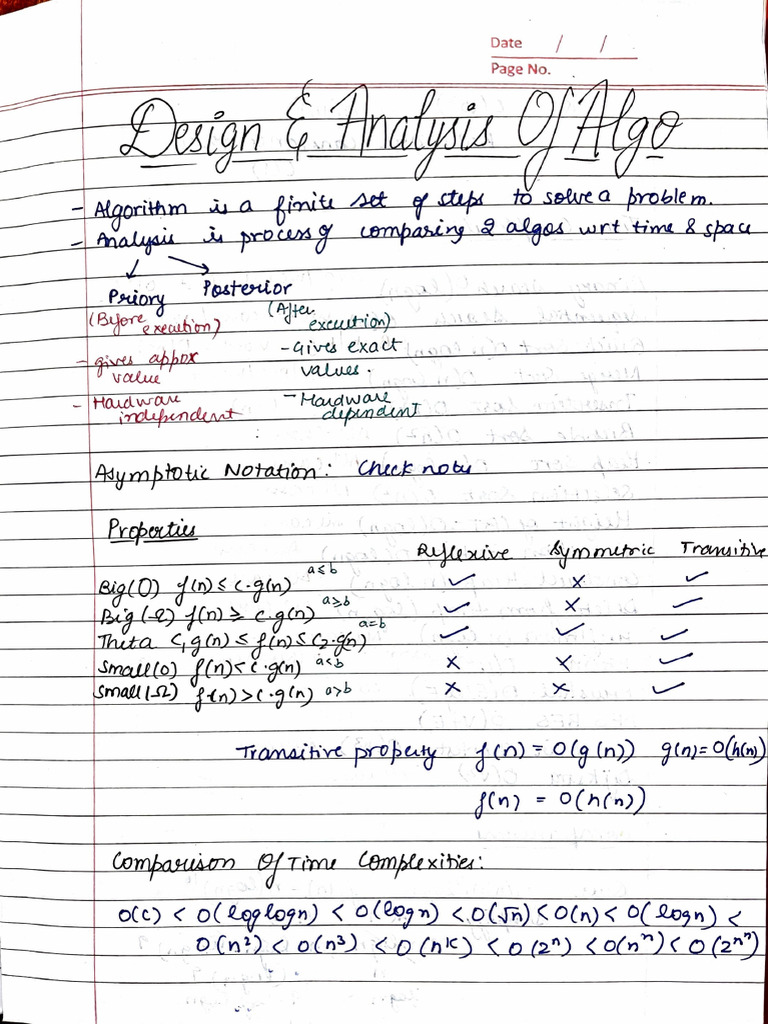 Date / /
Page No.
Design & Analysis Of Algo
- Algorithm is a finite set of steps to solve a problem.
- Analysis is process of comparing 2 algos wrt time & space
Priory Posterior
(Before execution) (After execution)
- gives approx value - Gives exact values.
- Hardware independent - Hardware dependent
Asymptotic Notation: Check notes
Properties
Reflexive Symmetric Transitive
Big(O) f(n) ≤ c·g(n) a≤b ✓ × ✓
Big(Ω) f(n) ≥ c·g(n) a≥b ✓ × ✓
Theta c₁g(n) ≤ f(n) ≤ c₂·g(n) a=b ✓ ✓ ✓
Small(o) f(n) < c·g(n) a<b × × ✓
Small(Ω) f(n) > c·g(n) a>b × × ✓
Transitive property f(n) = O(g(n)) g(n) = O(h(n))
f(n) = O(h(n))
Comparison Of Time Complexities:
O(c) < O(loglogn) < O(logn) < O(√n) < O(n) < O(logn) <
O(n²) < O(n³) < O(nᵏ) < O(2ⁿ) < O(nⁿ) < O(2^n^n)